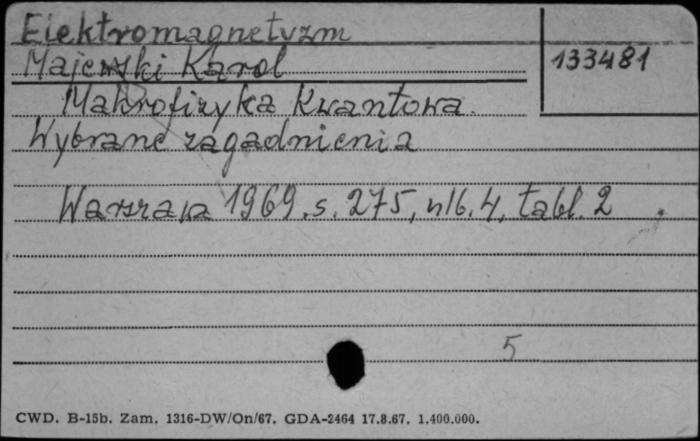 Elektromagnetyzm
133481
Majewski Karol
Makrofizyka kwantowa.
Wybrane zagadnienia
Warszawa 1969, s. 275, nlb. 4, tabl. 2
5
CWD. B-15b. Zam. 1316-DW/On/67. GDA-2464 17.8.67. 1.400.000.